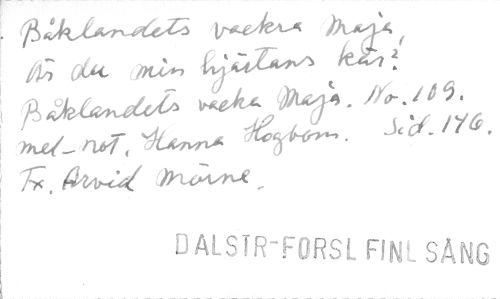 Båklandets vackra Maja,
Är du min hjärtans kär?
Båklandets vacka Maja. No. 109.
mel-not. Hanna Hogbom. Sid. 146.
Tx. Arvid Mörne.
DALSTR-FORSL FINL SÅNG